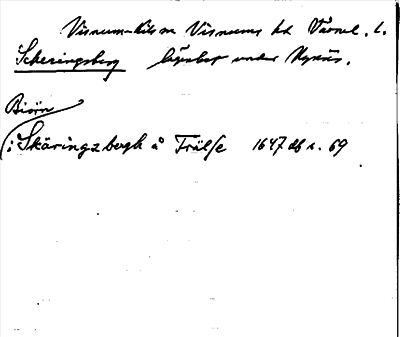 Visnum-Kils sn Visnums hd Värml. l.
Scheringsberg lägenhet under Nynäs.
Biörn
: Skäringzbergh å Frälse 1647 db s. 69